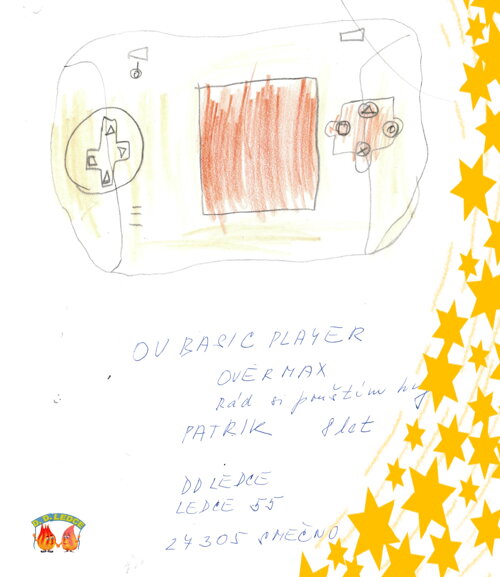 OV BASIC PLAYER
OVERMAX
rád si pouštím hry
PATRIK 8 let
DD LEDCE
LEDCE 55
27305 SMEČNO
D.D. LEDCE